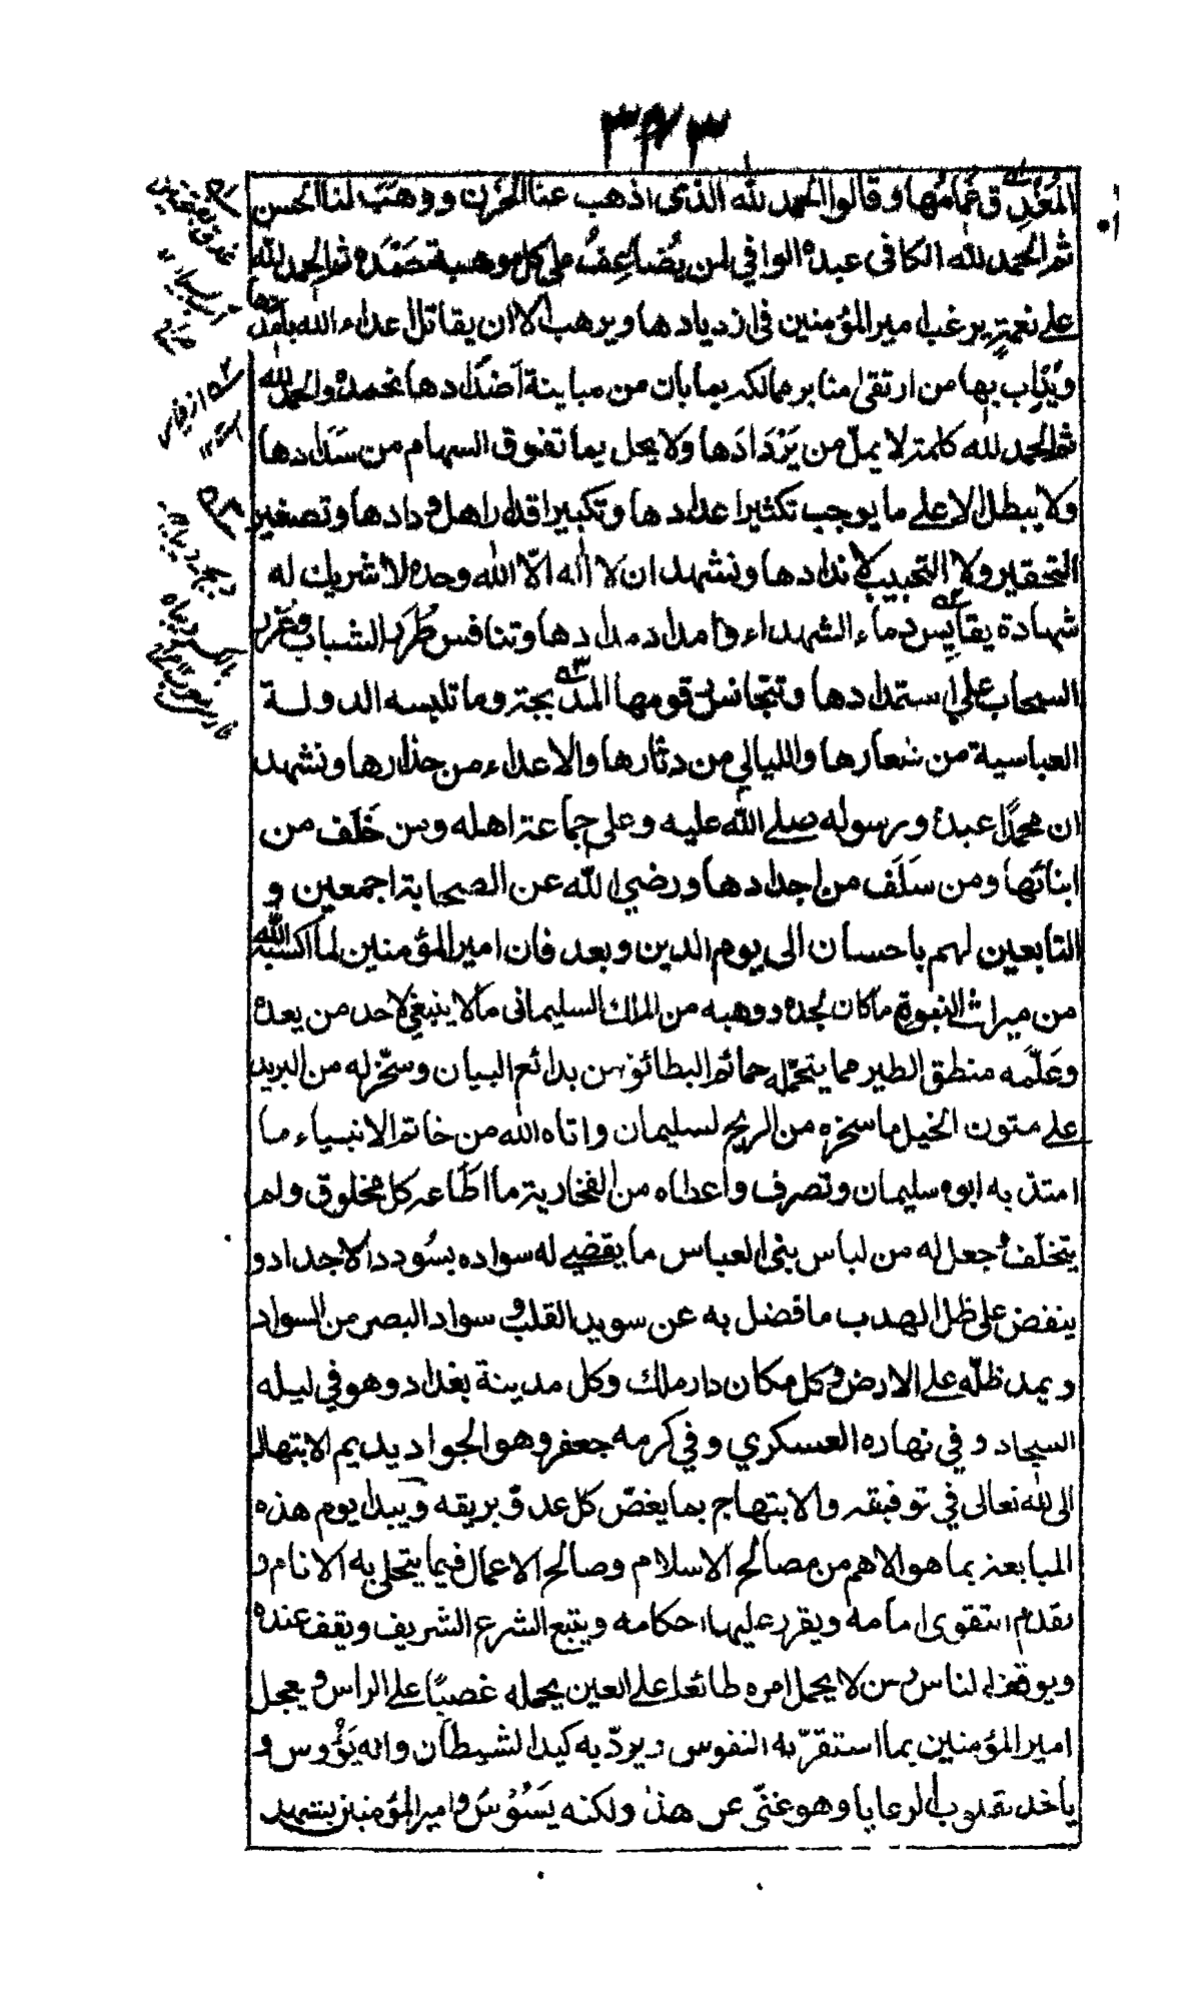 ٣٤٣
المُغْدِق غمامُها وقالوا الحمد لله الذى اذهب عنا الحَزَن ووهَبَ لنا الحُسن
ثم الحمد لله الكافى عبده الوافي لمن يُضاعِفُ على كل موهبة حَمْدَه ثم الحمد لله
على نعمةٍ يرغب امير المؤمنين فى ازديادها ويرهب الا ان يقاتل اعداء الله بامدادها
بها من ارتقى منابر ممالكه بما بان من مباينة اَضدادها نحمده والحمد لله
ثم الحمد لله كلمة لا يملّ من يَزْدَادَها ولا يحل بما تفوق السهام من سَدَادها
ولا يبطل الا على ما يوجب تكثير اعدادها وتكبير اقدار اهل ودادها وتصغير
التحقير ولا التحبيب لاندادها ونشهد ان لا اله الّا الله وحده لا شريك له
شهادة يقايس دماء الشهداء وامداد مدادها وتنافس طُرَر الشباب وغُرَر
السحاب على استمدادها وتتجانس رقومها المدبجة وما تلبسه الدولة
العباسية من شعارها والليالي من دثارها والاعداء من حذارها ونشهد
ان محمدًا عبده ورسوله صلى الله عليه وعلى جماعة اهله ومن خَلَف من
ابنائها ومن سَلَف من اجدادها ورضي الله عن الصحابة اجمعين و
التابعين لهم باحسان الى يوم الدين وبعد فان امير المؤمنين لما اكسبه الله
من ميراث النبوة ما كان لجده ووهبه من الملك السليمانى ما لا ينبغي لاحد من بعده
وعَلّمَه منطق الطير مما يتحمّله حمائم البطائق من بدائع البيان وسخّر له من البريد
على متون الخيل ما سخره من الريح لسليمان واتاه الله من خاتم الانبياء ما
امتد به ابوه سليمان وتصرف واعطاه من الفخار به ما اطاعه كل مخلوق ولم
يتخلف وجعل له من لباس بنى العباس ما يقضي له سواده بسُودد الاجداد و
ينفض على ظل الهدب ما فضل به عن سويدا القلب وسواد البصر من السواد
ويمد ظلّه على الارض وكل مكان دار ملك وكل مدينة بغداد وهو في ليله
السجاد وفي نهاره العسكري وفي كرمه جعفر وهو الجواد يديم الابتهال
الى الله تعالى في توفيقه والابتهاج بما يغصّ كل عدوّ بريقه ويبدا يوم هذه
المبايعة بما هو الاهم من مصالح الاسلام وصالح الاعمال فيما يتحلى به الانام و
يقدم التقوى امامه ويقرر عليها احكامه ويتبع الشرع الشريف ويقف عنده
ويوقف الناس ومن لا يحمل امره طائعا على العين يحمله غصبًا على الراس ويعجل
امير المؤمنين بما استقرّ به النفوس ويردّ به كيد الشيطان وانه يَؤُوس و
ياخذ بقلوب الرعايا وهو غنيّ عن هذا ولكنه يَسُوْسُ وامير المؤمنين يشهد